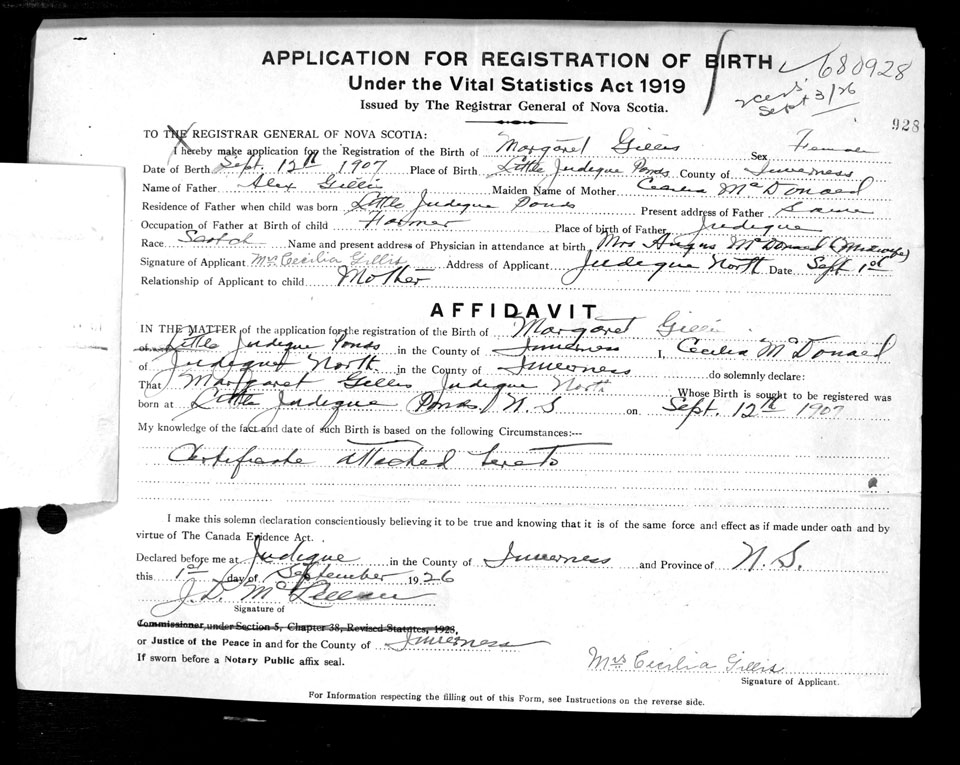 APPLICATION FOR REGISTRATION OF BIRTH
Under the Vital Statistics Act 1919
Issued by The Registrar General of Nova Scotia.
680928
Sept 3/26
928
TO THE REGISTRAR GENERAL OF NOVA SCOTIA:
I hereby make application for the Registration of the Birth of Margaret Gillis Sex Female
Date of Berth Sept. 12th 1907 Place of Birth Little Judique Ponds County of Inverness
Name of Father Alex Gillis Maiden Name of Mother Cecilia McDonald
Residence of Father when child was born Little Judique Ponds Present address of Father Same
Occupation of Father at Birth of child Farmer Place of birth of Father Judique
Race Scotch Name and present address of Physician in attendance at birth Mrs Angus McDonald (Midwife)
Signature of Applicant Mrs Cecilia Gillis Address of Applicant Judique North Date Sept 1st
Relationship of Applicant to child Mother
AFFIDAVIT
IN THE MATTER of the application for the registration of the Birth of Margaret Gillis
of Little Judique Ponds in the County of Inverness I, Cecilia McDonald
of Judique North in the County of Inverness do solemnly declare:
That Margaret Gillis Judique North Whose Birth is sought to be registered was
born at Little Judique Ponds N.S on Sept. 12th 1907
My knowledge of the fact and date of such Birth is based on the following Circumstances:—
Certificate attached hereto
I make this solemn declaration conscientiously believing it to be true and knowing that it is of the same force and effect as if made under oath and by
virtue of The Canada Evidence Act.
Declared before me at Judique in the County of Inverness and Province of N.S.
this 1st day of September 1926
J.D. McLellan
Signature of
Commissioner, under Section 5, Chapter 38, Revised Statutes, 1923,
or Justice of the Peace in and for the County of Inverness
If sworn before a Notary Public affix seal.
Mrs Cecilia Gillis
Signature of Applicant.
For Information respecting the filling out of this Form, see Instructions on the reverse side.